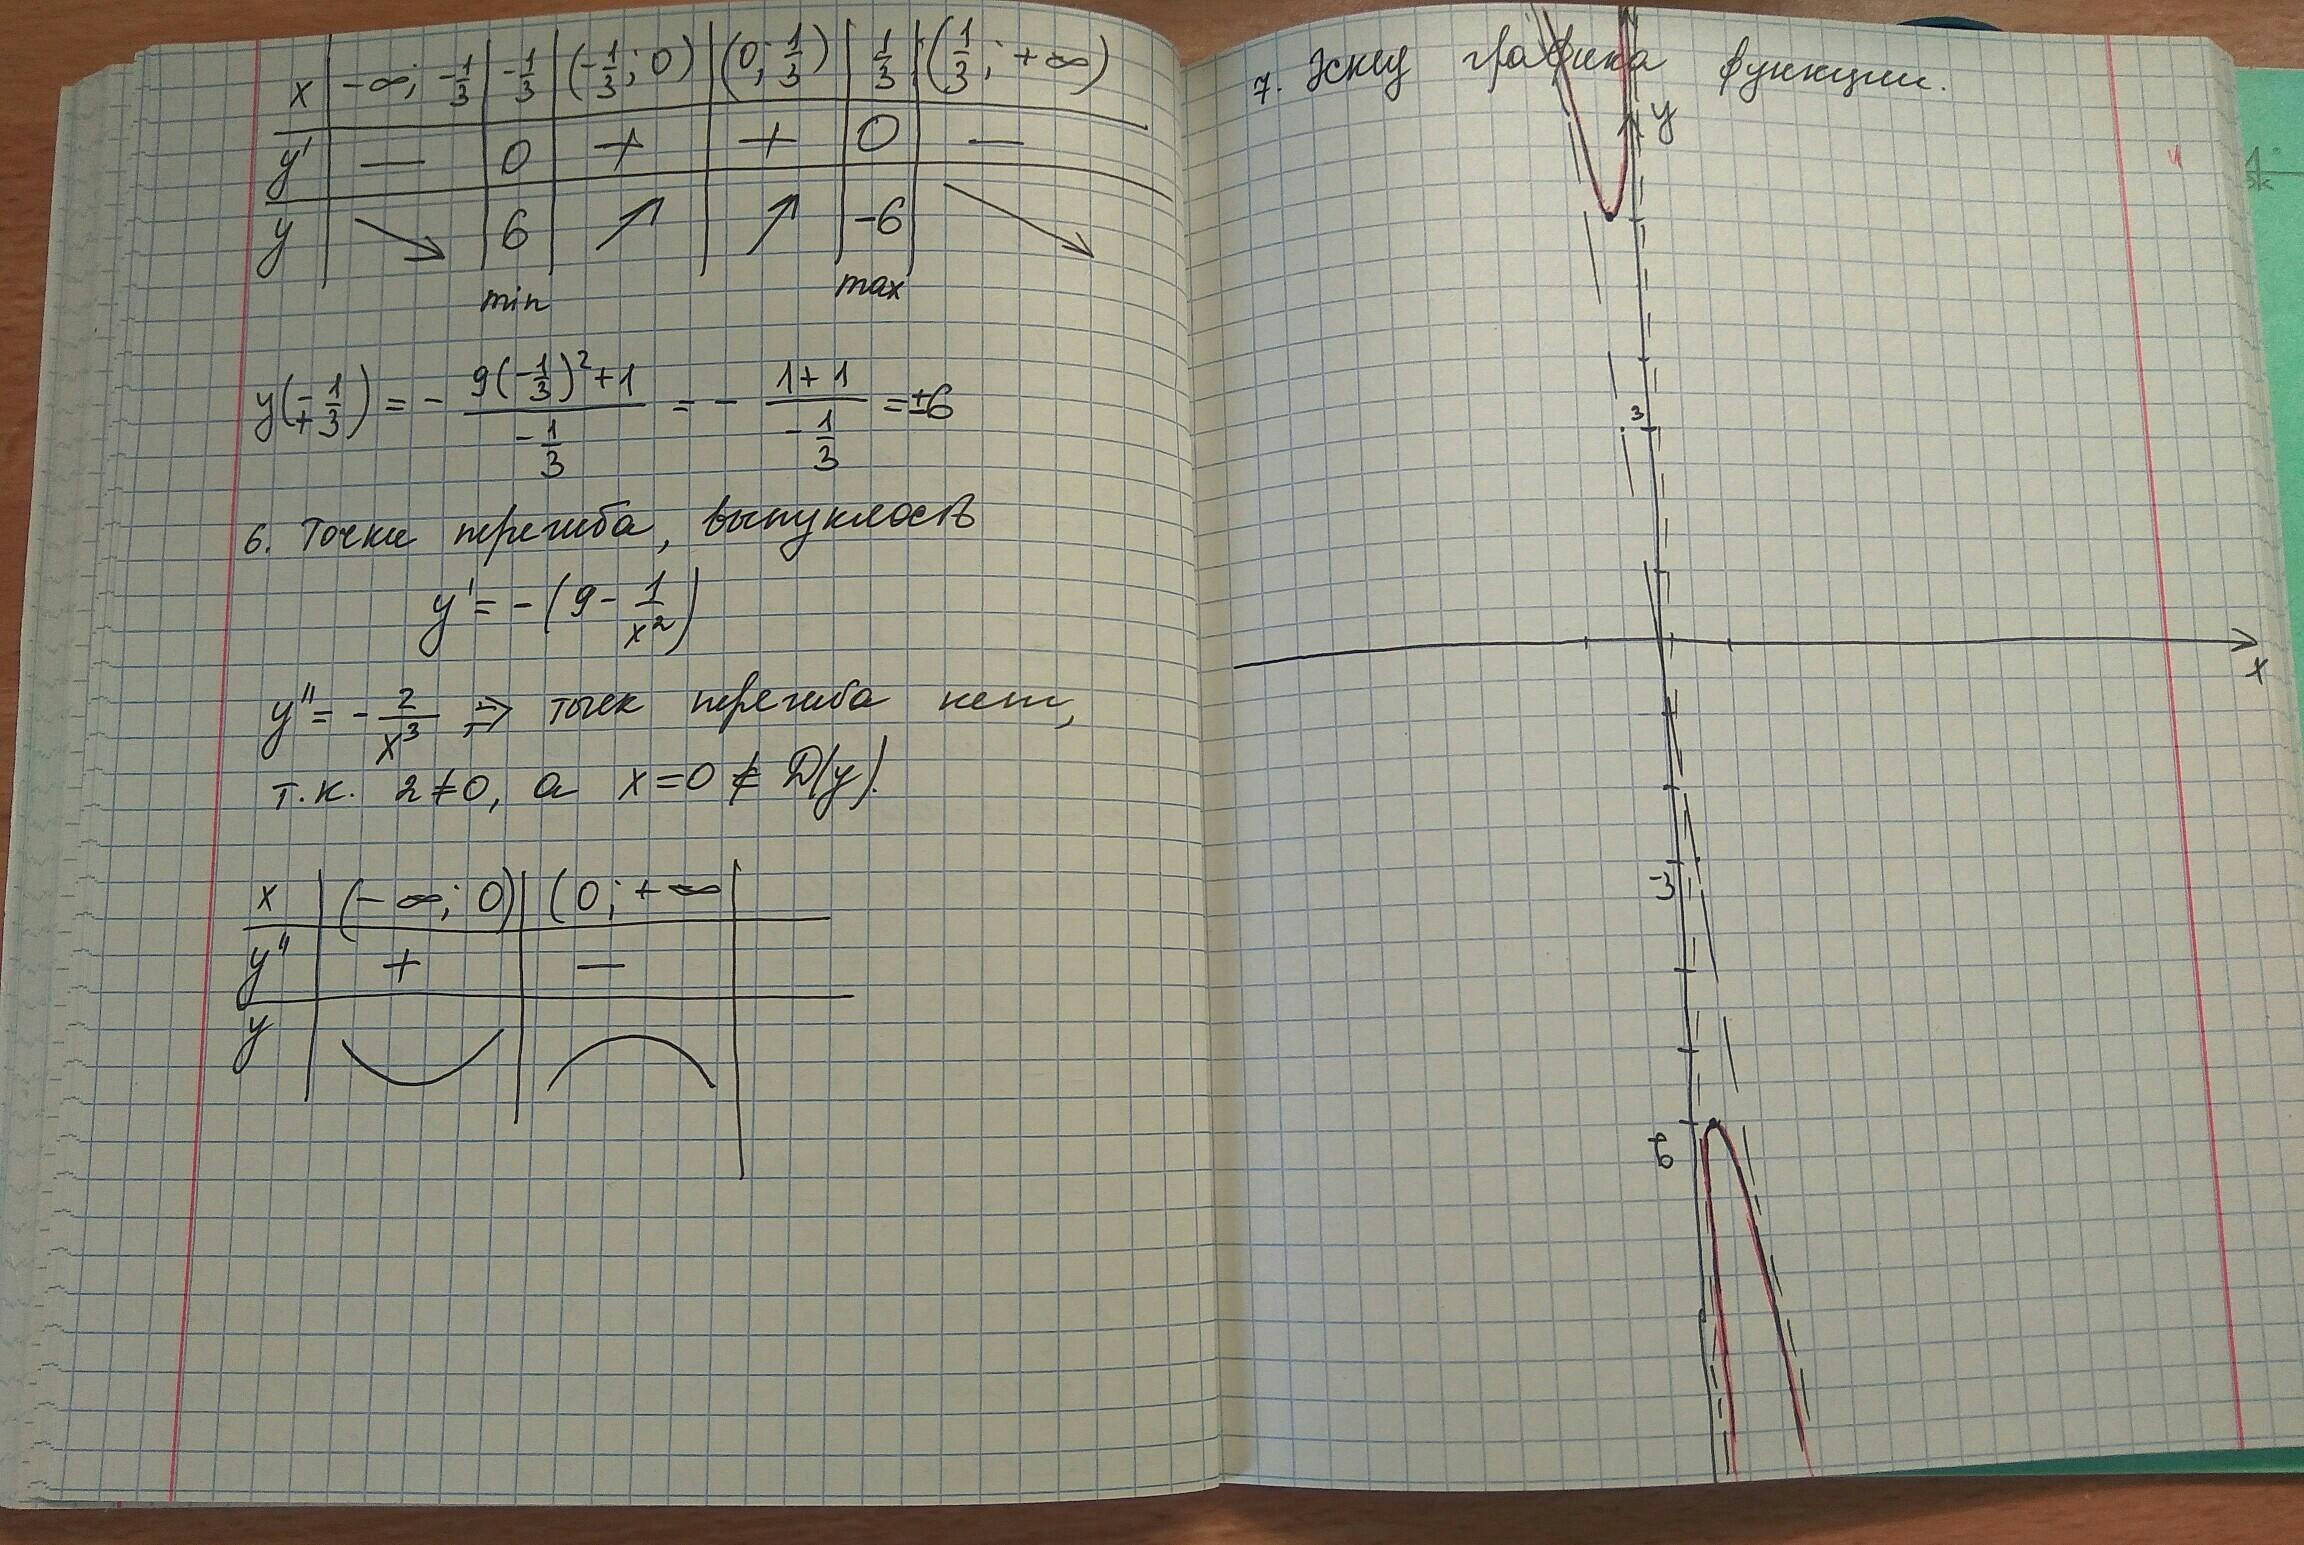 x | -∞; -1/3 | -1/3 | (-1/3; 0) | (0; 1/3) | 1/3 | (1/3; +∞)
y' | — | 0 | + | + | 0 | —
y | ↘ | 6 | ↗ | ↗ | -6 | ↘
min max
y(∓1/3) = - (9(-1/3)²+1)/(-1/3) = - (1+1)/(-1/3) = ±6
6. Точки перегиба, выпуклость
y' = -(9 - 1/x²)
y'' = - 2/x³ ⇒ точек перегиба нет,
т.к. 2≠0, а x=0 ∉ D(y).
x | (-∞; 0) | (0; +∞
y'' | + | —
y
7. Эскиз графика функции.
y
3
x
-3
-6